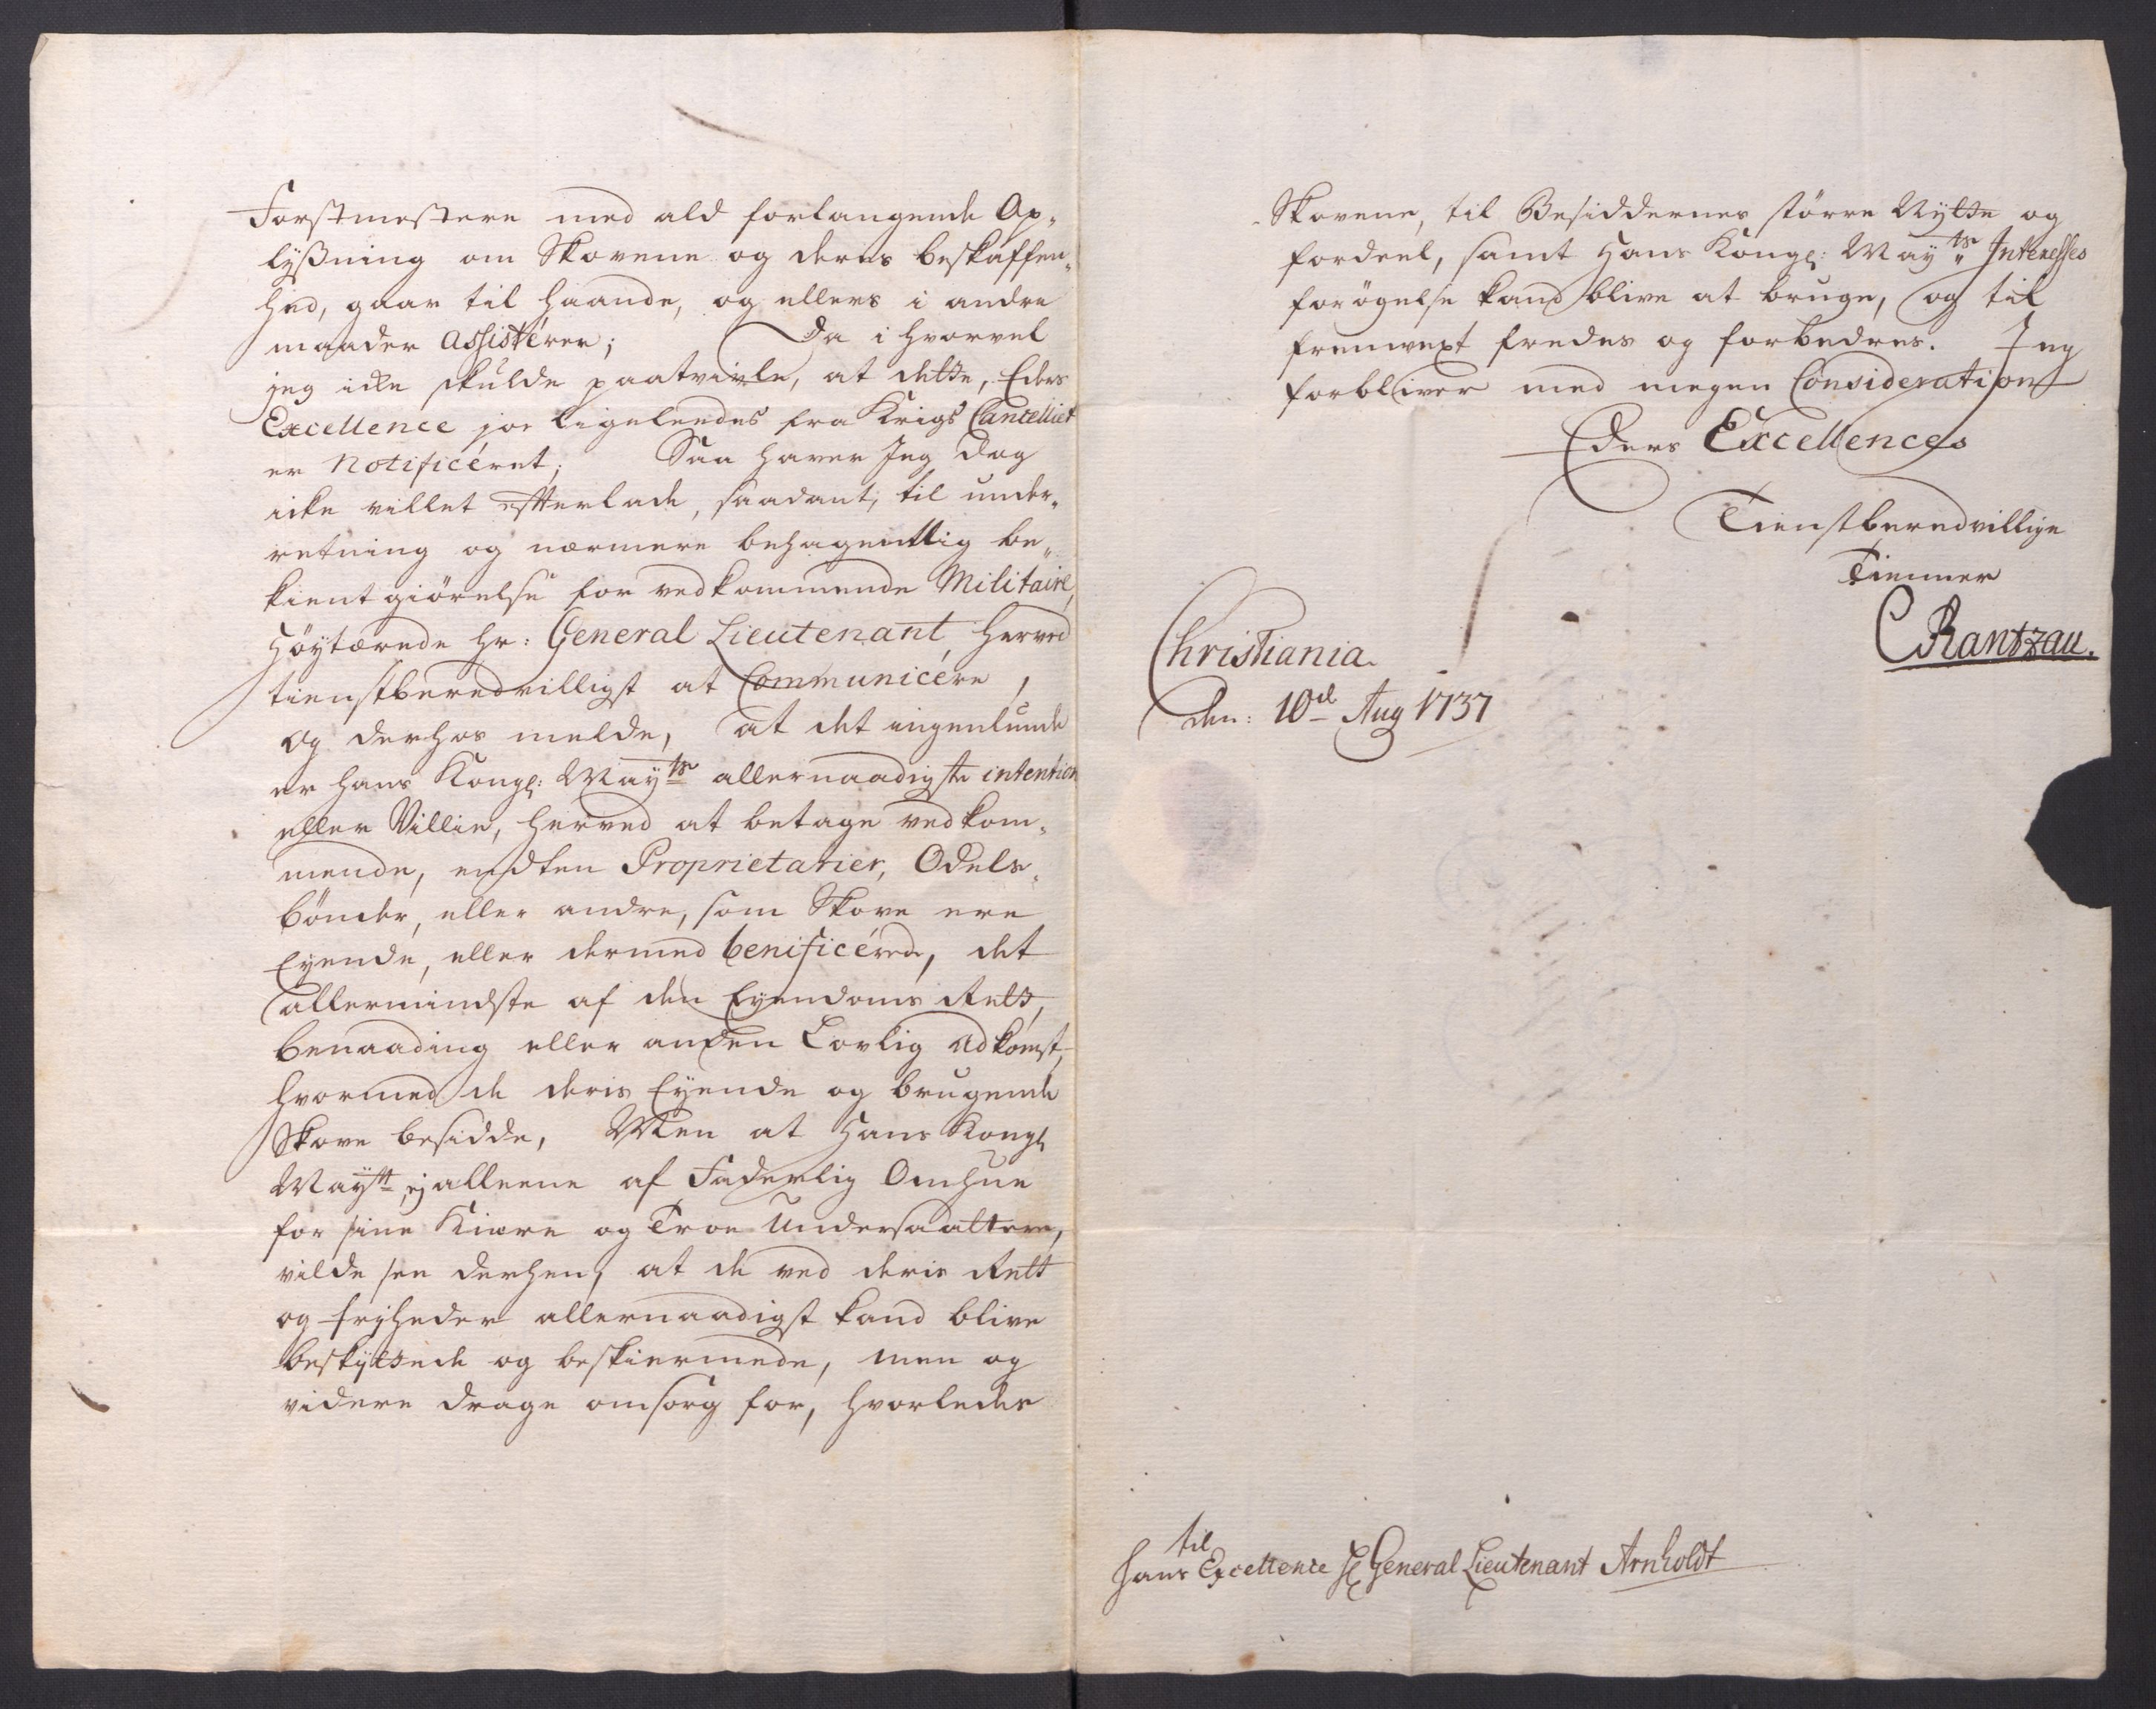 Forstmestere med ald forlangende Op„
lyßning om Skovene og deres beskaffen„
hed, gaar til haande, og ellers i andre
maader Assistérer; Da i hvorvel
jeg icke skulde paatvivle, at dette, Eders
Excellence jo ligeleedes fra Krigs Cancelliet
er Notificéret; Saa haver Jeg dog
icke villet efterlade, saadant, til under„
retning og nærmere behagentlig be„
kientgiörelse for vedkommende Militaire,
Höytærede Hr: General Lieutenant, herved
tienstberedvilligst at Communicére,
og derhos melde, at det ingenlunde
er Hans Kongl: May:ts allernaadigste intention
eller Villie, herved at betage vedkom„
mende, endten Proprietarier, Odels„
bönder, eller andre, som Skove ere
Eyende, eller dermed benificérede, det
allermindste af den Eyendoms Rett,
benaading eller anden Lovlig adkomst,
hvormed de deris Eyende og brugende
Skove besidde, Men at Hans Kongl
Maytt ej alleene af Faderlig Omhue
for sine Kiære og Troe Undersaattere,
vilde see derhen, at de ved deris Rett
og friheder allernaadigst kand blive
beskyttede og beskiermede, men og
videre drage omsorg for, hvorledes
Skovene, til Besiddernes större Nytte og
fordeel, samt Hans Kongl: May:ts Interesses
forögelse kand blive at bruge, og til
fremvext fredes og forbedres. Jeg
forbliver med megen Consideration
Eders Excellences
Tienstberedvillige
Tienner
CRantzau.
Christiania.
den: 10de Aug 1737
til
Hans Excellence Hr General Lieutenant Arnholdt